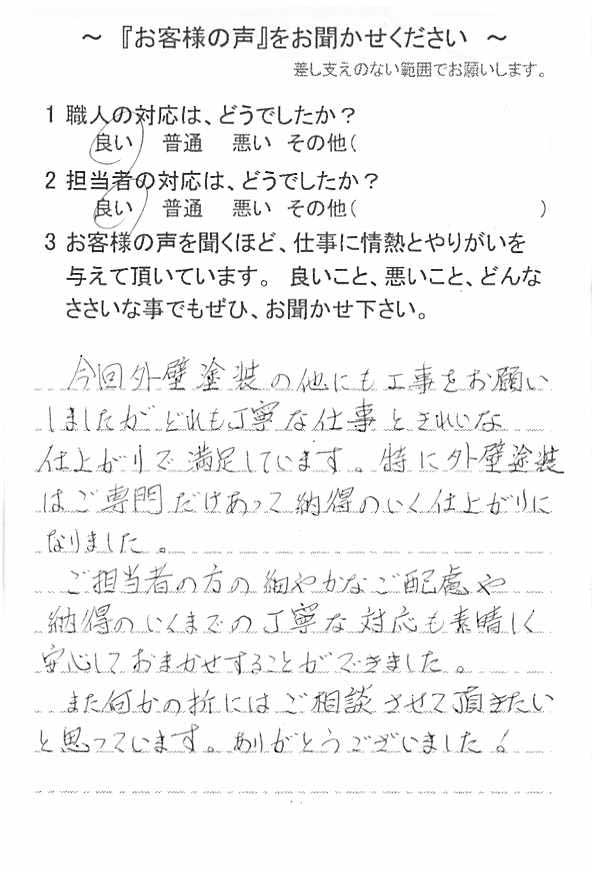 ～ 『お客様の声』をお聞かせください ～
差し支えのない範囲でお願いします。
1 職人の対応は、どうでしたか？
良い 普通 悪い その他(
2 担当者の対応は、どうでしたか？
良い 普通 悪い その他( )
3 お客様の声を聞くほど、仕事に情熱とやりがいを
与えて頂いています。 良いこと、悪いこと、どんな
ささいな事でもぜひ、お聞かせ下さい。
今回外壁塗装の他にも工事をお願い
しましたがどれも丁寧な仕事ときれいな
仕上がりで満足しています。特に外壁塗装
はご専門だけあって納得のいく仕上がりに
なりました。
ご担当者の方の細やかなご配慮や
納得のいくまでの丁寧な対応も素晴しく
安心しておまかせすることができました。
また何かの折にはご相談させて頂きたい
と思っています。ありがとうございました！